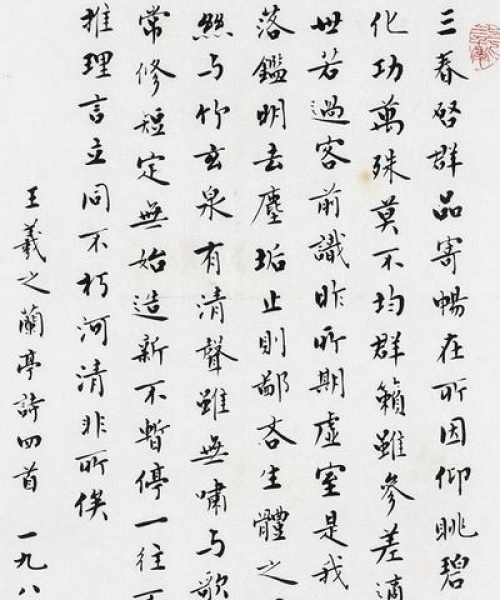 三春啓群品寄暢在所因仰眺碧
化功萬殊莫不均群籟雖參差適
世若過客前識非所期虛室是我
落鑑明去塵垢止則鄙吝生體之
絲与竹玄泉有清聲雖無嘯与歌
常修短定無始造新不暫停一往
推理言立同不朽河清非所俟
王羲之蘭亭詩四首 一九八